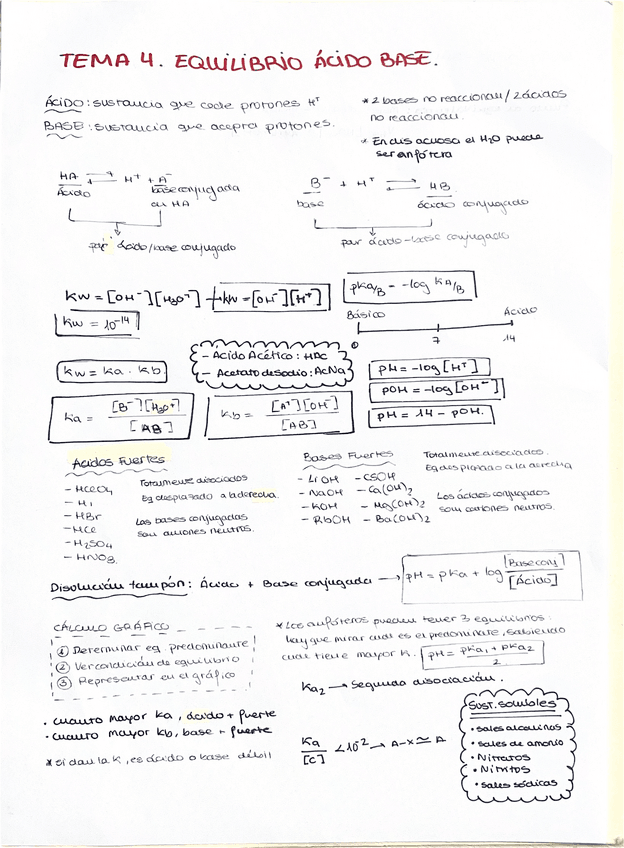 TEMA 4. EQUILIBRIO ÁCIDO BASE.
ÁCIDO: sustancia que cede protones H⁺
BASE: sustancia que acepta protones.
* 2 bases no reaccionan / 2 ácidos
no reaccionan.
* En dis acuosa el H₂O puede
ser anfótera
HA ⇌ H⁺ + A⁻
Ácido base conjugada
en HA
par ácido/base conjugado
B⁻ + H⁺ ⇌ HB
base ácido conjugado
par ácido-base conjugado
Kw = [OH⁻][H₃O⁺] → Kw = [OH⁻][H⁺]
Kw = 10⁻¹⁴
pKa/B = -log KA/B
Básico Ácido
0 7 14
Kw = Ka · Kb
- Ácido Acético: HAc
- Acetato de sodio: AcNa
pH = -log [H⁺]
pOH = -log [OH⁻]
pH = 14 - pOH.
Ka = [B⁻][H₃O⁺] / [AB]
Kb = [A⁺][OH⁻] / [AB]
Ácidos Fuertes
- HClO₄
- HI
- HBr
- HCl
- H₂SO₄
- HNO₃.
Totalmente disociados
Eq desplazado a la derecha.
Las bases conjugadas
son aniones neutros.
Bases Fuertes
- LiOH - CSOH
- NaOH - Ca(OH)₂
- KOH - Mg(OH)₂
- RbOH - Ba(OH)₂
Totalmente disociados.
Eq desplazado a la derecha
Los ácidos conjugados
som cationes neutros.
Disolución tampón: Ácido + Base conjugada → pH = pKa + log [Base conj] / [Ácido]
CÁLCULO GRÁFICO
① Determinar eq. predominante
② Ver condición de equilibrio
③ Representar en el gráfico
* Los anfóteros pueden tener 3 equilibrios:
hay que mirar cual es el predominate, sabiendo
cual tiene mayor K. pH = pKa₁ + pKa₂ / 2
Ka₂ → Segunda disociación.
· cuanto mayor Ka, ácido + fuerte
· cuanto mayor Kb, base + fuerte
* si dan la K, es ácido o base débil
Ka / [C] < 10⁻² → A-x ≃ A
SUST. SOLUBLES
· sales alcalinas
· sales de amonio
· Nitratos
· Nitritos
· sales sódicas